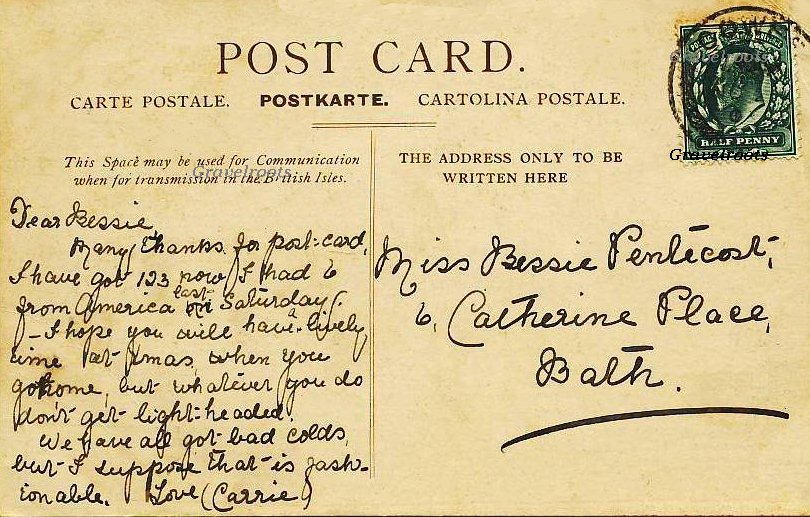 POST CARD.
CARTE POSTALE. POSTKARTE. CARTOLINA POSTALE.
This Space may be used for Communication
when for transmission in the British Isles.
THE ADDRESS ONLY TO BE
WRITTEN HERE
HALF PENNY
Gravelroots
Gravelroots
Gravelroots
Dear Bessie,
Many thanks for post-card,
I have got 123 now, I had 6
from America last Saturday.
– I hope you will have a lively
time at Xmas, when you
go home, but whatever you do
don't get light-headed.
We have all got bad colds,
but I suppose that is fash-
ionable. Love (Carrie)
Miss Bessie Pentecost,
6, Catherine Place,
Bath.